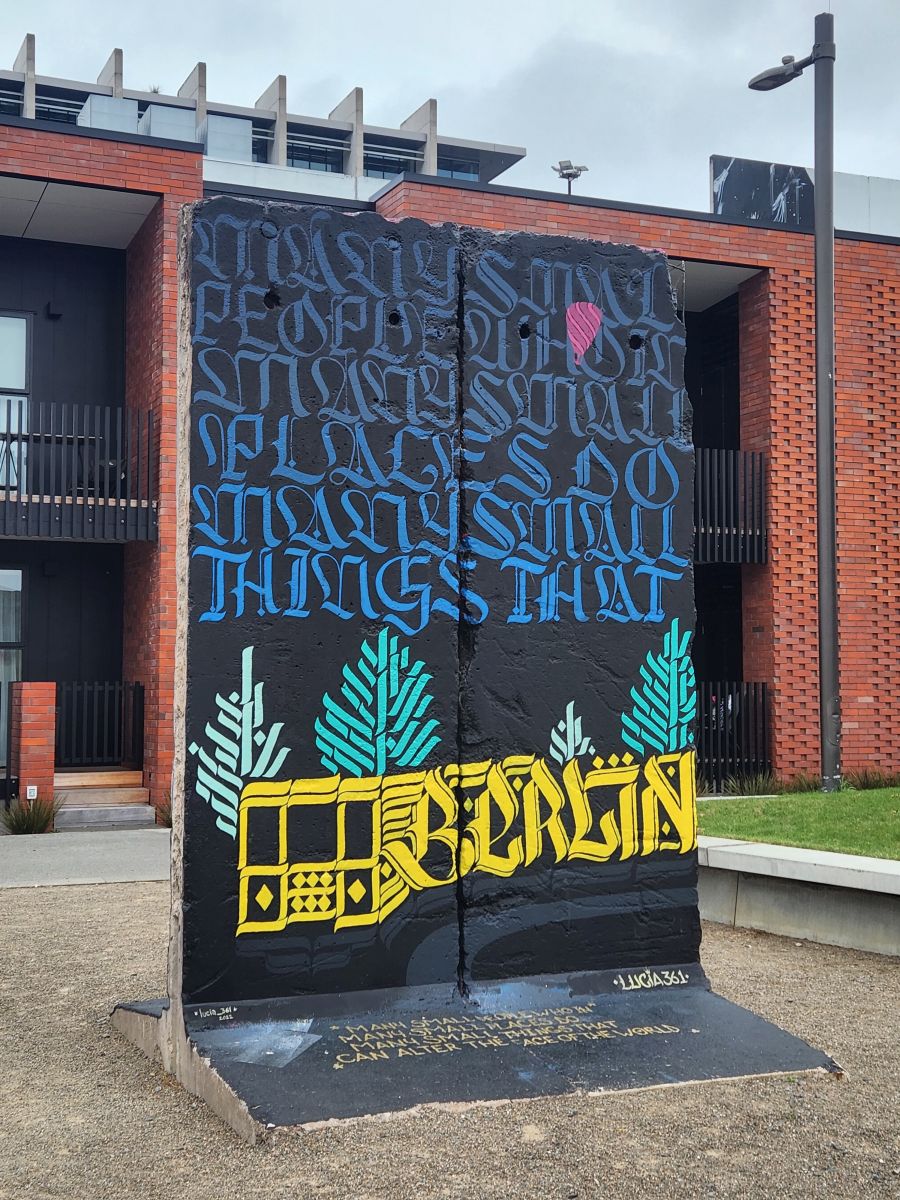 MANY SMALL
PEOPLE WHO IN
MANY SMALL
PLACES DO
MANY SMALL
THINGS THAT
BERLIN
·LUCIA361·
*lucia_361*
2022
*MANY SMALL PEOPLE WHO IN*
MANY SMALL PLACES DO
MANY SMALL THINGS THAT
*CAN ALTER THE FACE OF THE WORLD *